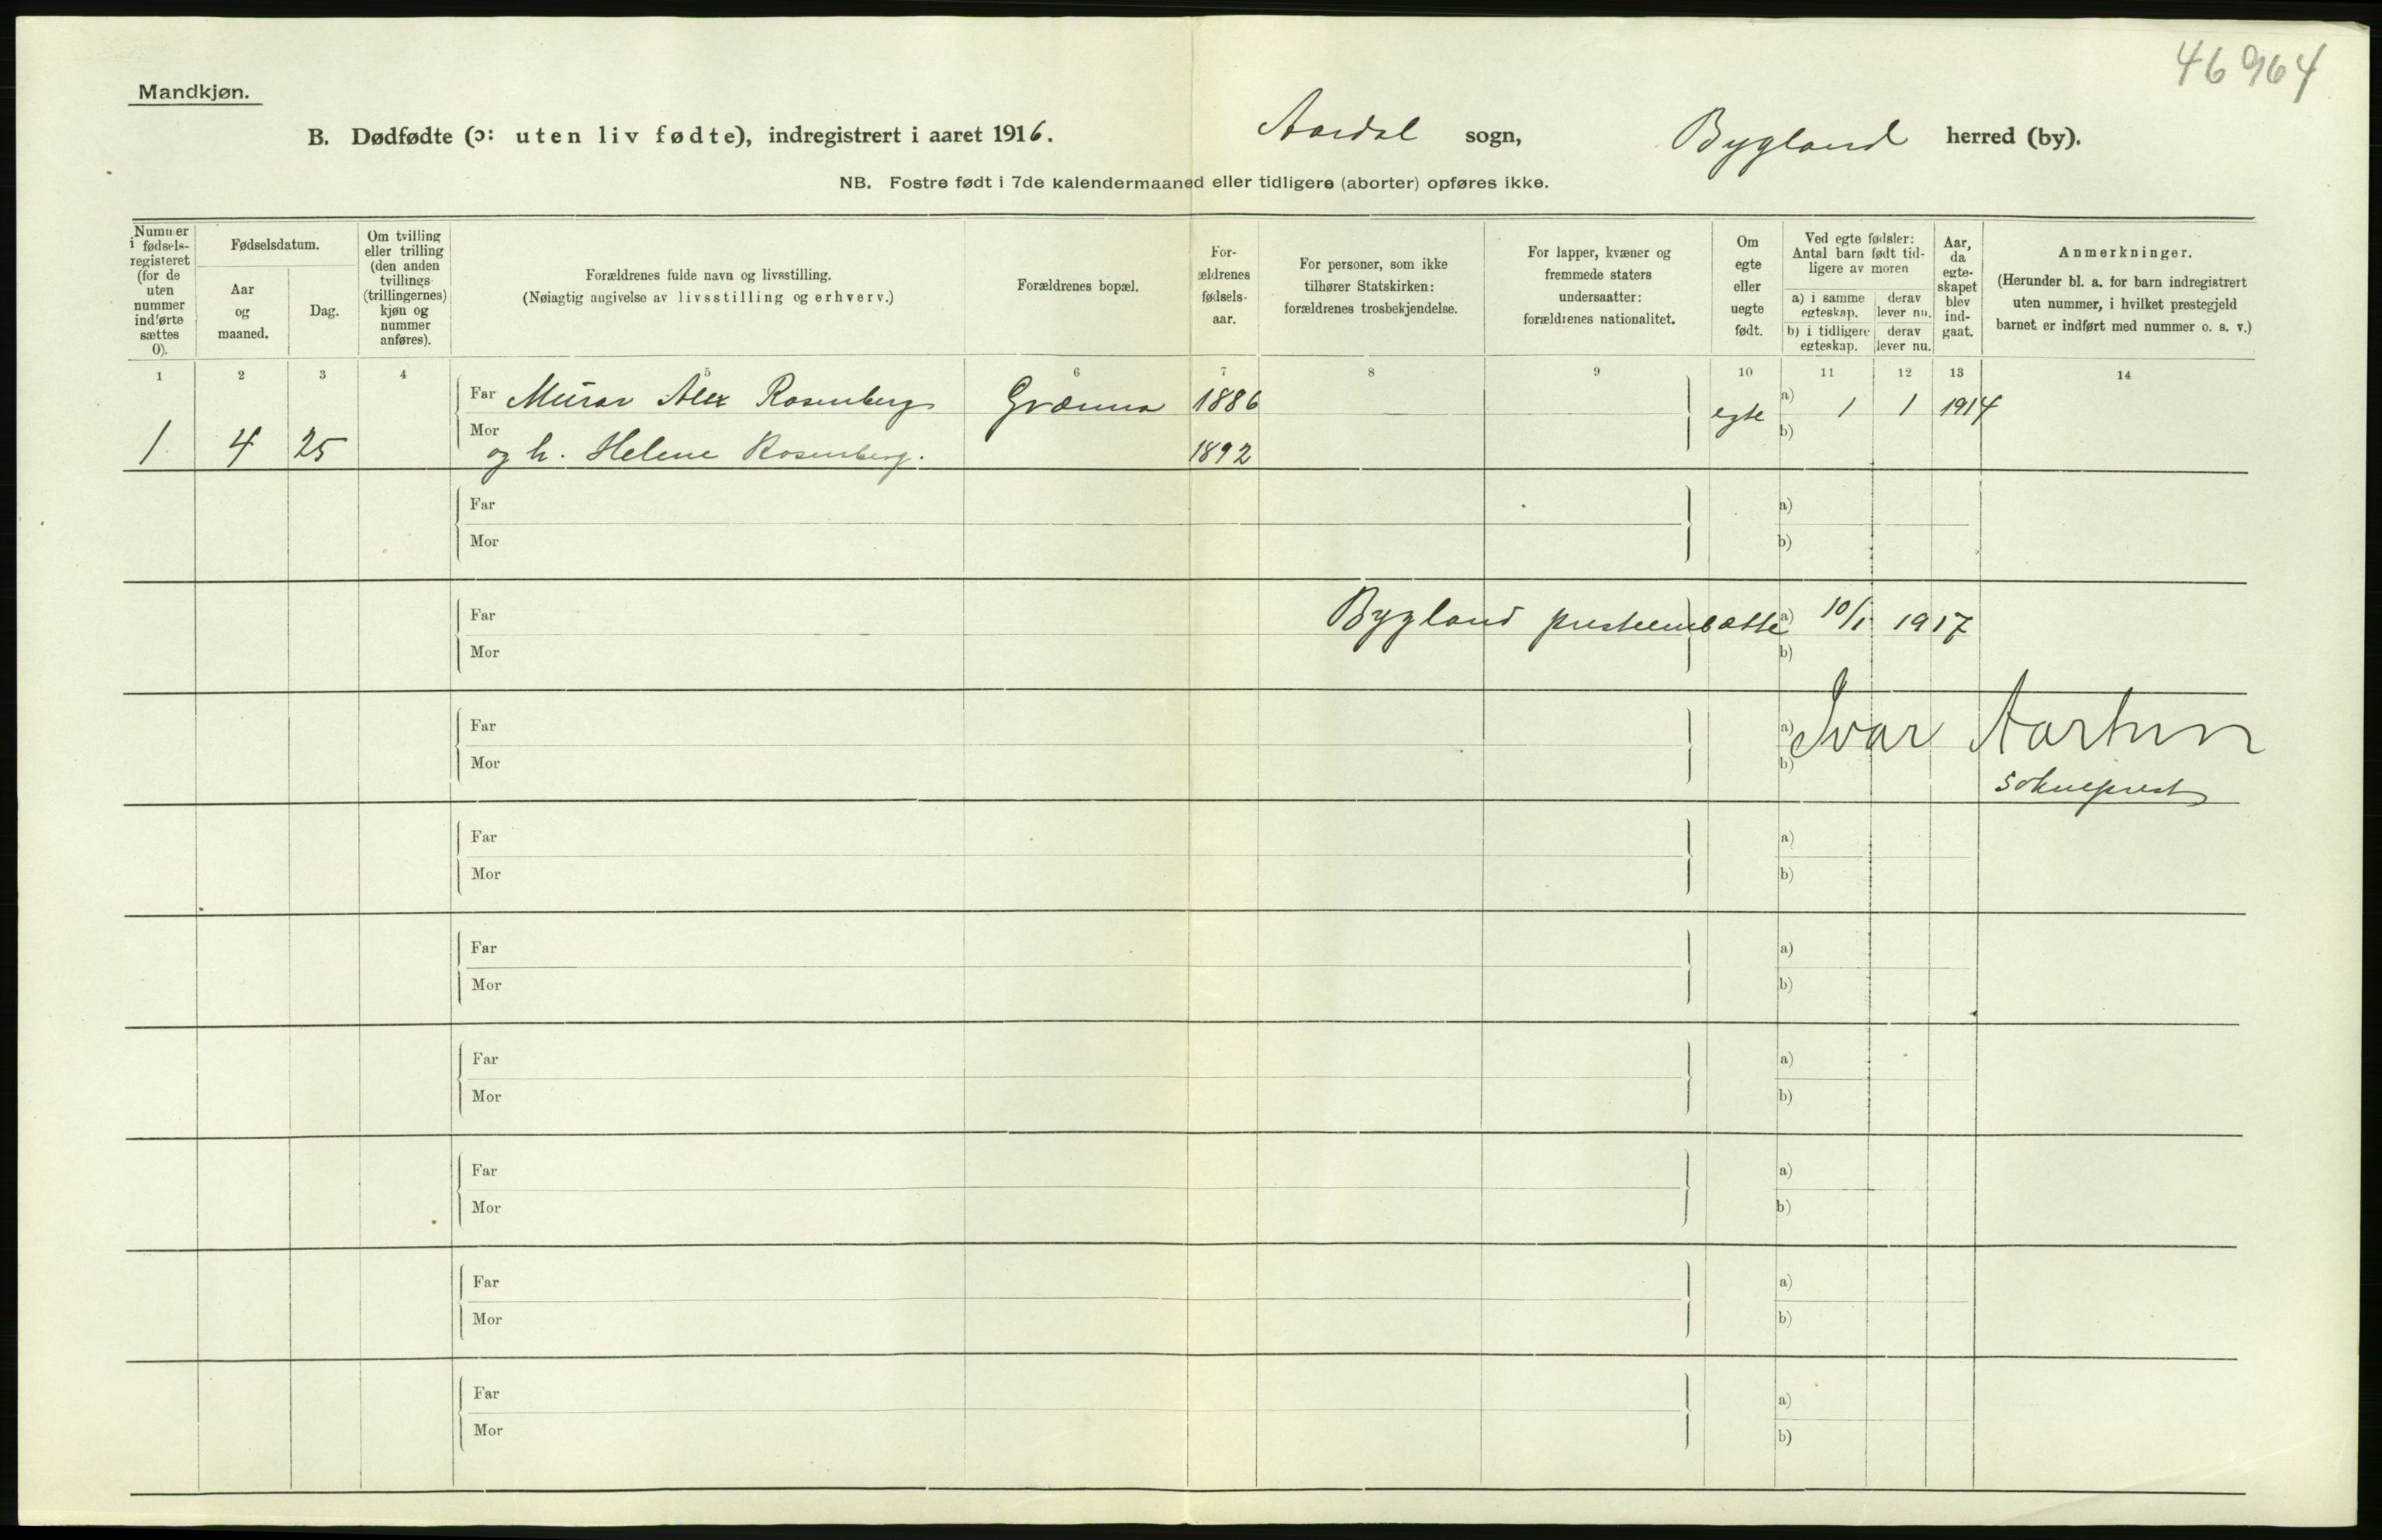 46964
Mandkjøn.
B. Dødfødte (ɔ: uten liv fødte), indregistrert i aaret 1916. Aardal sogn, Bygland herred (by).
NB. Fostre født i 7de kalendermaaned eller tidligere (aborter) opføres ikke.
Nummer i fødsels-registeret (for de uten nummer indførte sættes 0).
Fødselsdatum.
Aar og maaned.
Dag.
Om tvilling eller trilling (den anden tvillings (trillingernes) kjøn og nummer anføres).
Forældrenes fulde navn og livsstilling.
(Nøiagtig angivelse av livsstilling og erhverv.)
Forældrenes bopæl.
For-ældrenes fødsels-aar.
For personer, som ikke tilhører Statskirken: forældrenes trosbekjendelse.
For lapper, kvæner og fremmede staters undersaatter: forældrenes nationalitet.
Om egte eller uegte født.
Ved egte fødsler: Antal barn født tid-ligere av moren
a) i samme egteskap.
derav lever nu.
b) i tidligere egteskap.
derav lever nu.
Aar, da egte-skapet blev ind-gaat.
Anmerkninger.
(Herunder bl. a. for barn indregistrert uten nummer, i hvilket prestegjeld barnet er indført med nummer o. s. v.)
1 2 3 4 5 6 7 8 9 10 11 12 13 14
Far Murar Alex Rosenberg Grænna 1886 — — egte a) 1 1 1914
1 4 25 Mor og h. Helene Rosenberg. 1892 b)
Far a)
Mor b)
Far Bygland presteembætte a) 10/1 1917
Mor b)
Far a) Ivar Aartun
Mor b) sokneprest
Far a)
Mor b)
Far a)
Mor b)
Far a)
Mor b)
Far a)
Mor b)
Far a)
Mor b)
Far a)
Mor b)